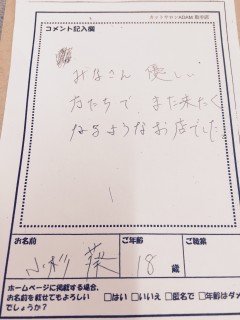 カットサロンADAM 敷津店
コメント記入欄
みなさん 優しい
方たちで、また来たく
なるようなお店でした
お名前 ご年齢 ご職業
小杉 菜 18 歳
ホームページに掲載する場合、
お名前を載せてもよろしい
でしょうか？
□はい □いいえ □匿名で □年齢はダメ